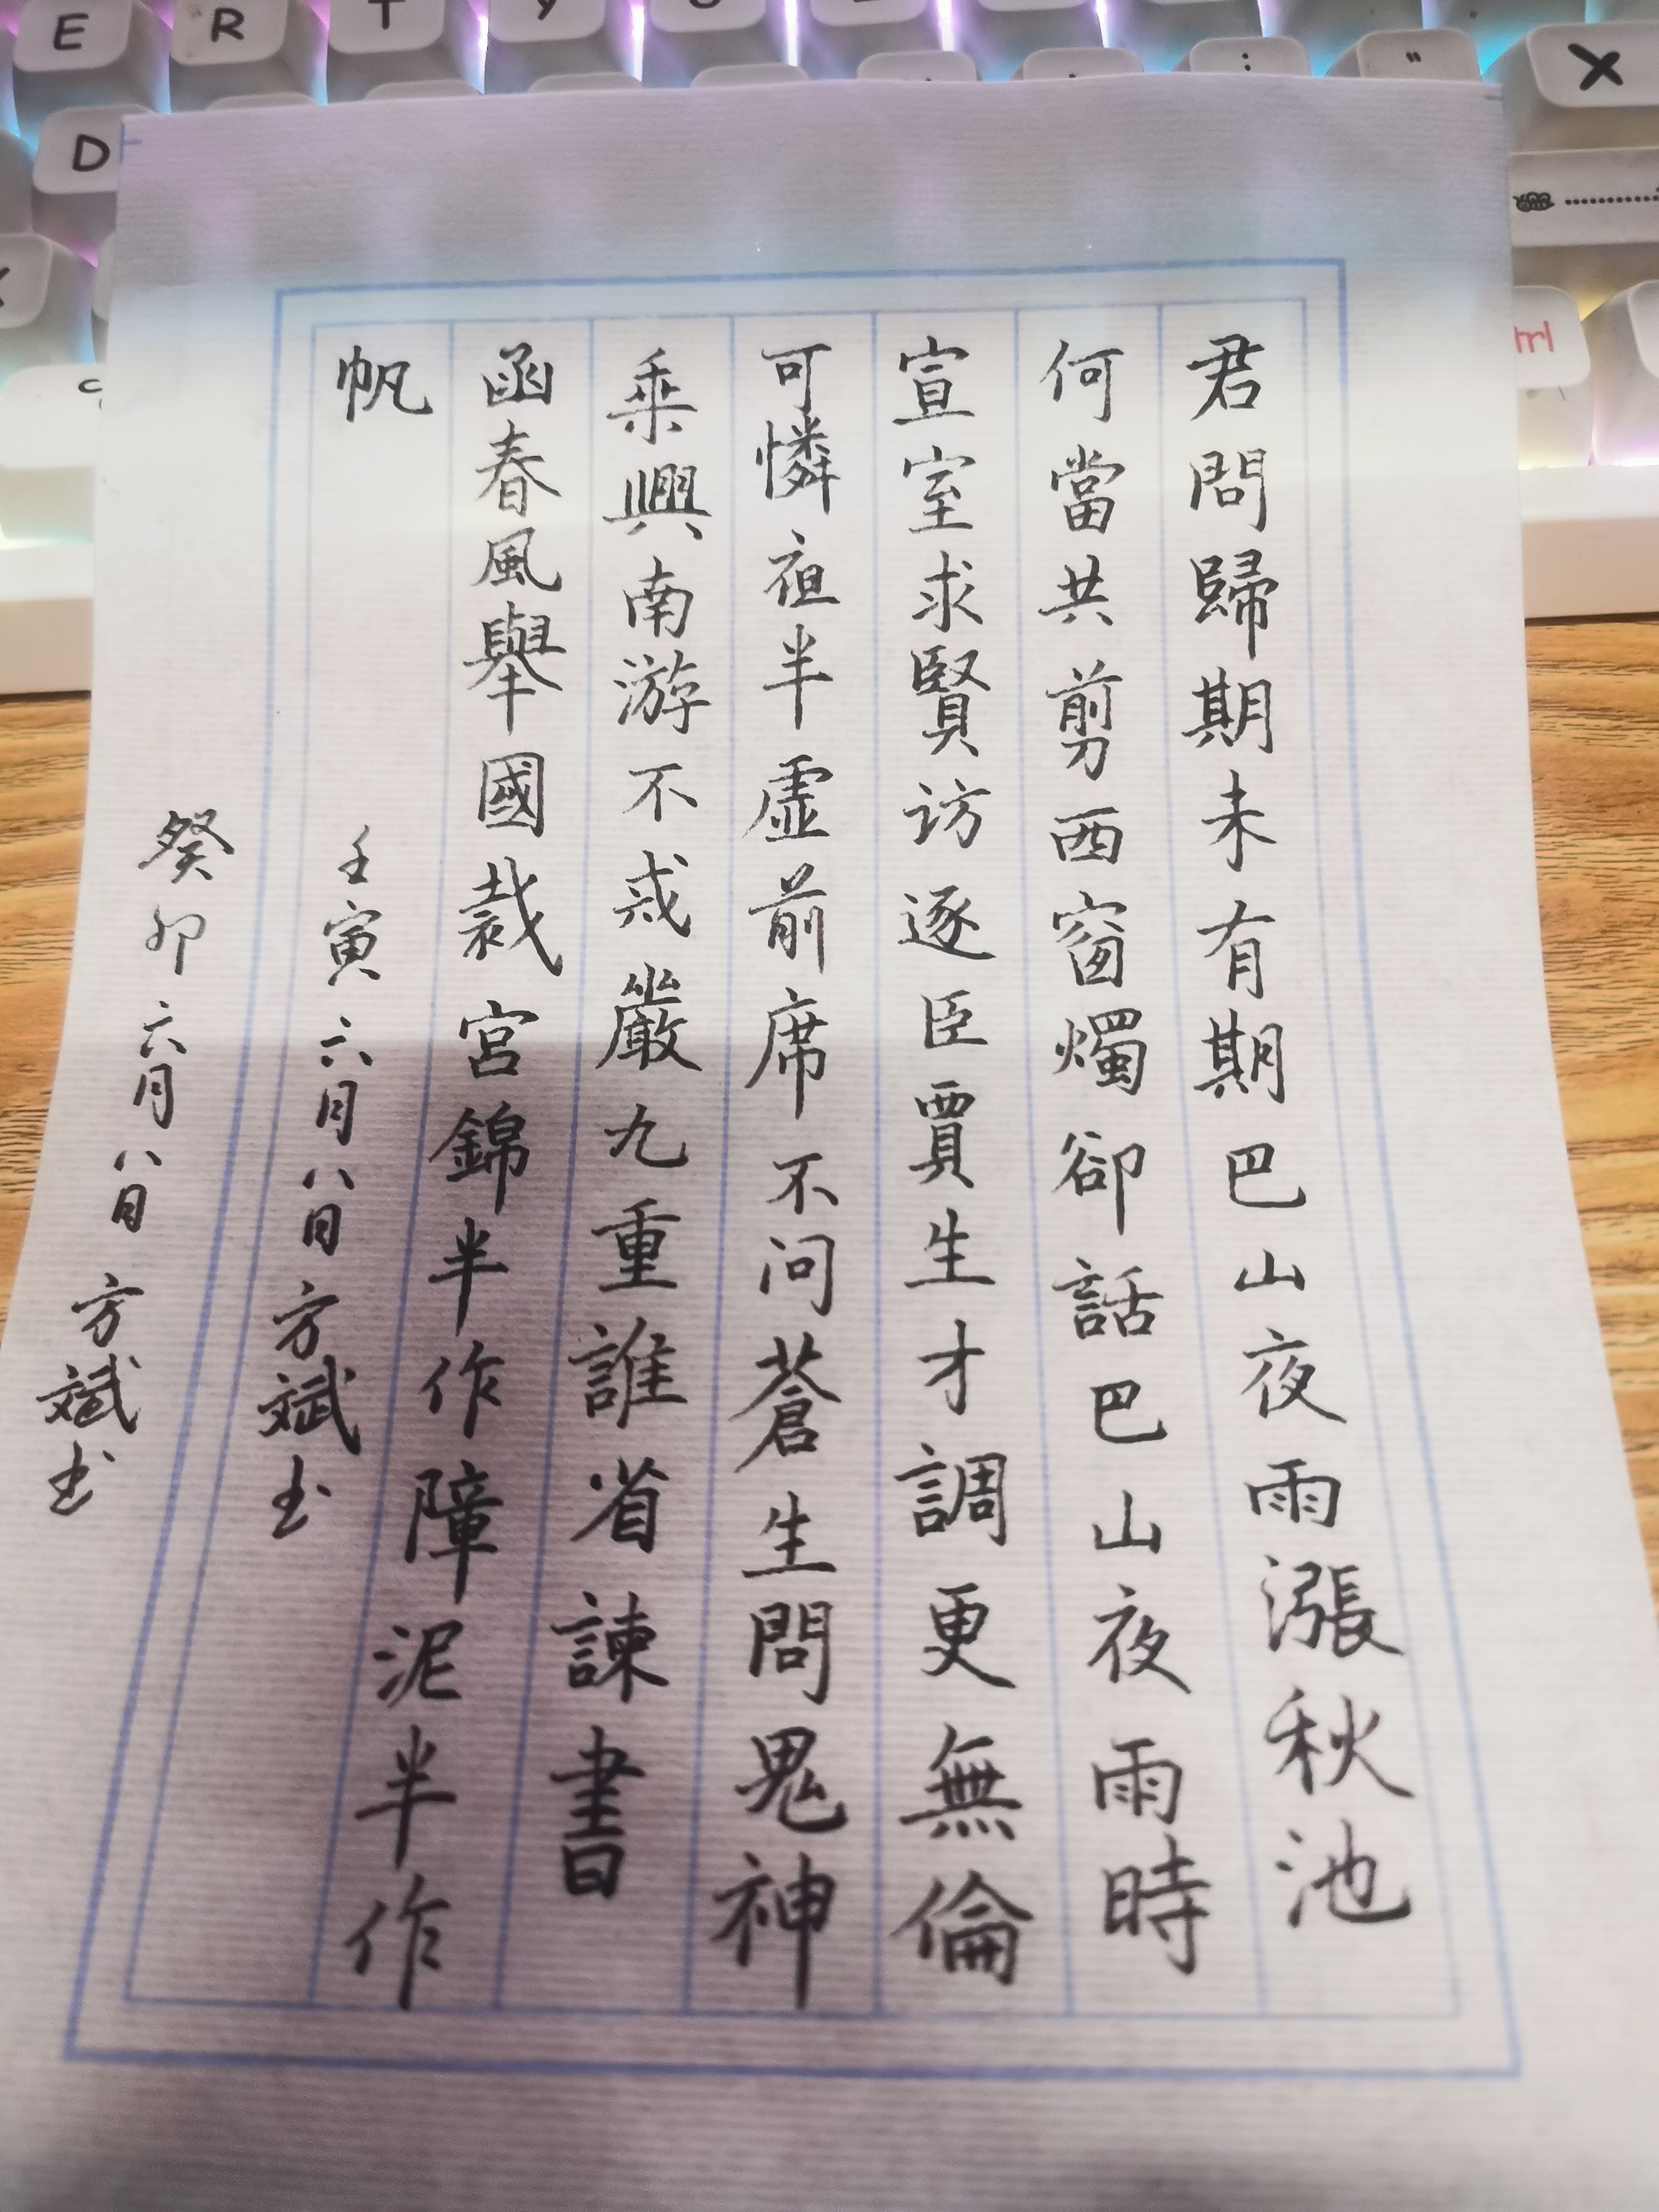 君問歸期未有期巴山夜雨漲秋池
何當共剪西窗燭卻話巴山夜雨時
宣室求賢访逐臣賈生才調更無倫
可憐夜半虛前席不问蒼生問鬼神
乘興南游不戒嚴九重誰省諫書
函春風舉國裁宮錦半作障泥半作
帆
壬寅六月八日方斌书
癸卯六月八日方斌书
E R T Y
D